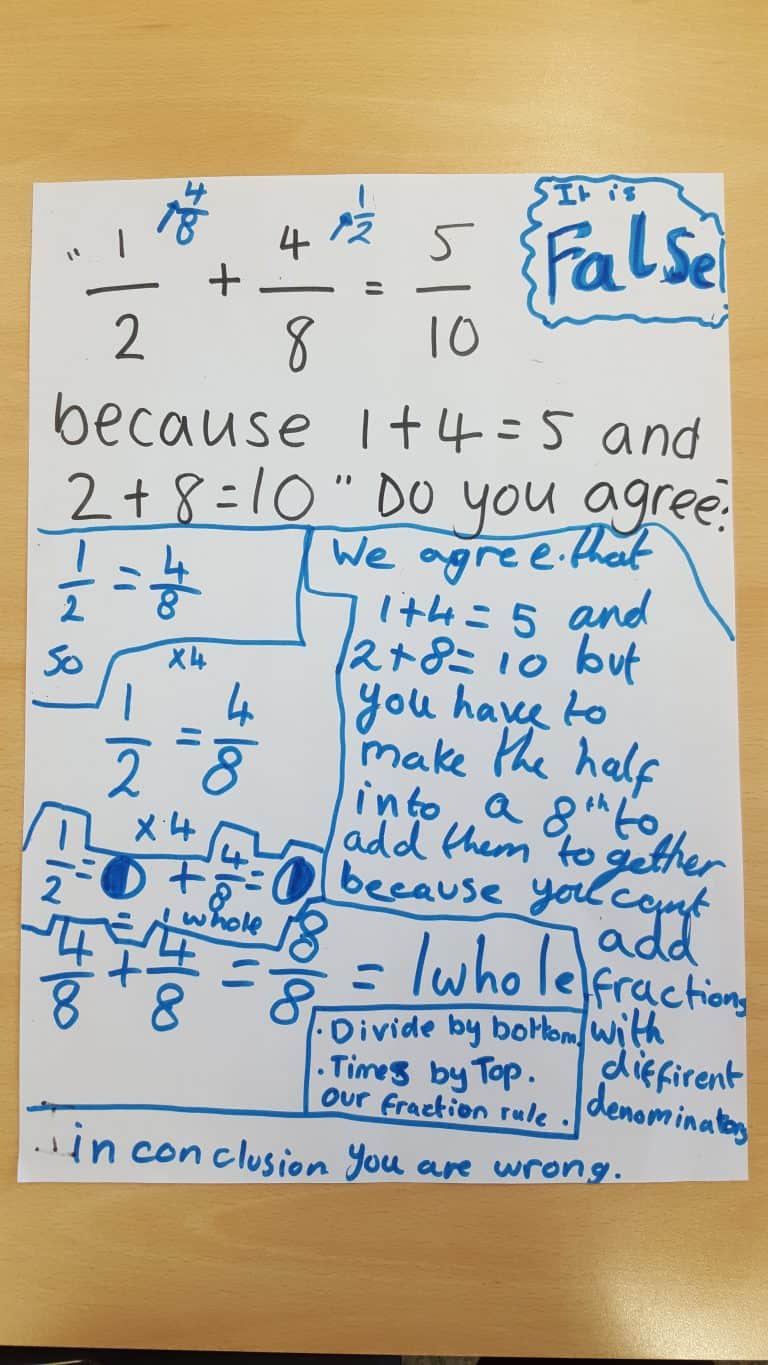 " 1/2 ↗4/8 + 4/8 ↗1/2 = 5/10
It is
False
because 1+4=5 and
2+8=10" Do you agree?
1/2 = 4/8
so
x4
1/2 = 4/8
x4
1/2 = + 4/8 =
= 1 whole
4/8 + 4/8 = 8/8 = 1whole
We agree that
1+4=5 and
2+8=10 but
you have to
make the half
into a 8th to
add them together
because you cant
add
fractions
with
diffirent
denominators
· Divide by bottom.
· Times by Top.
our fraction rule.
in conclusion you are wrong.